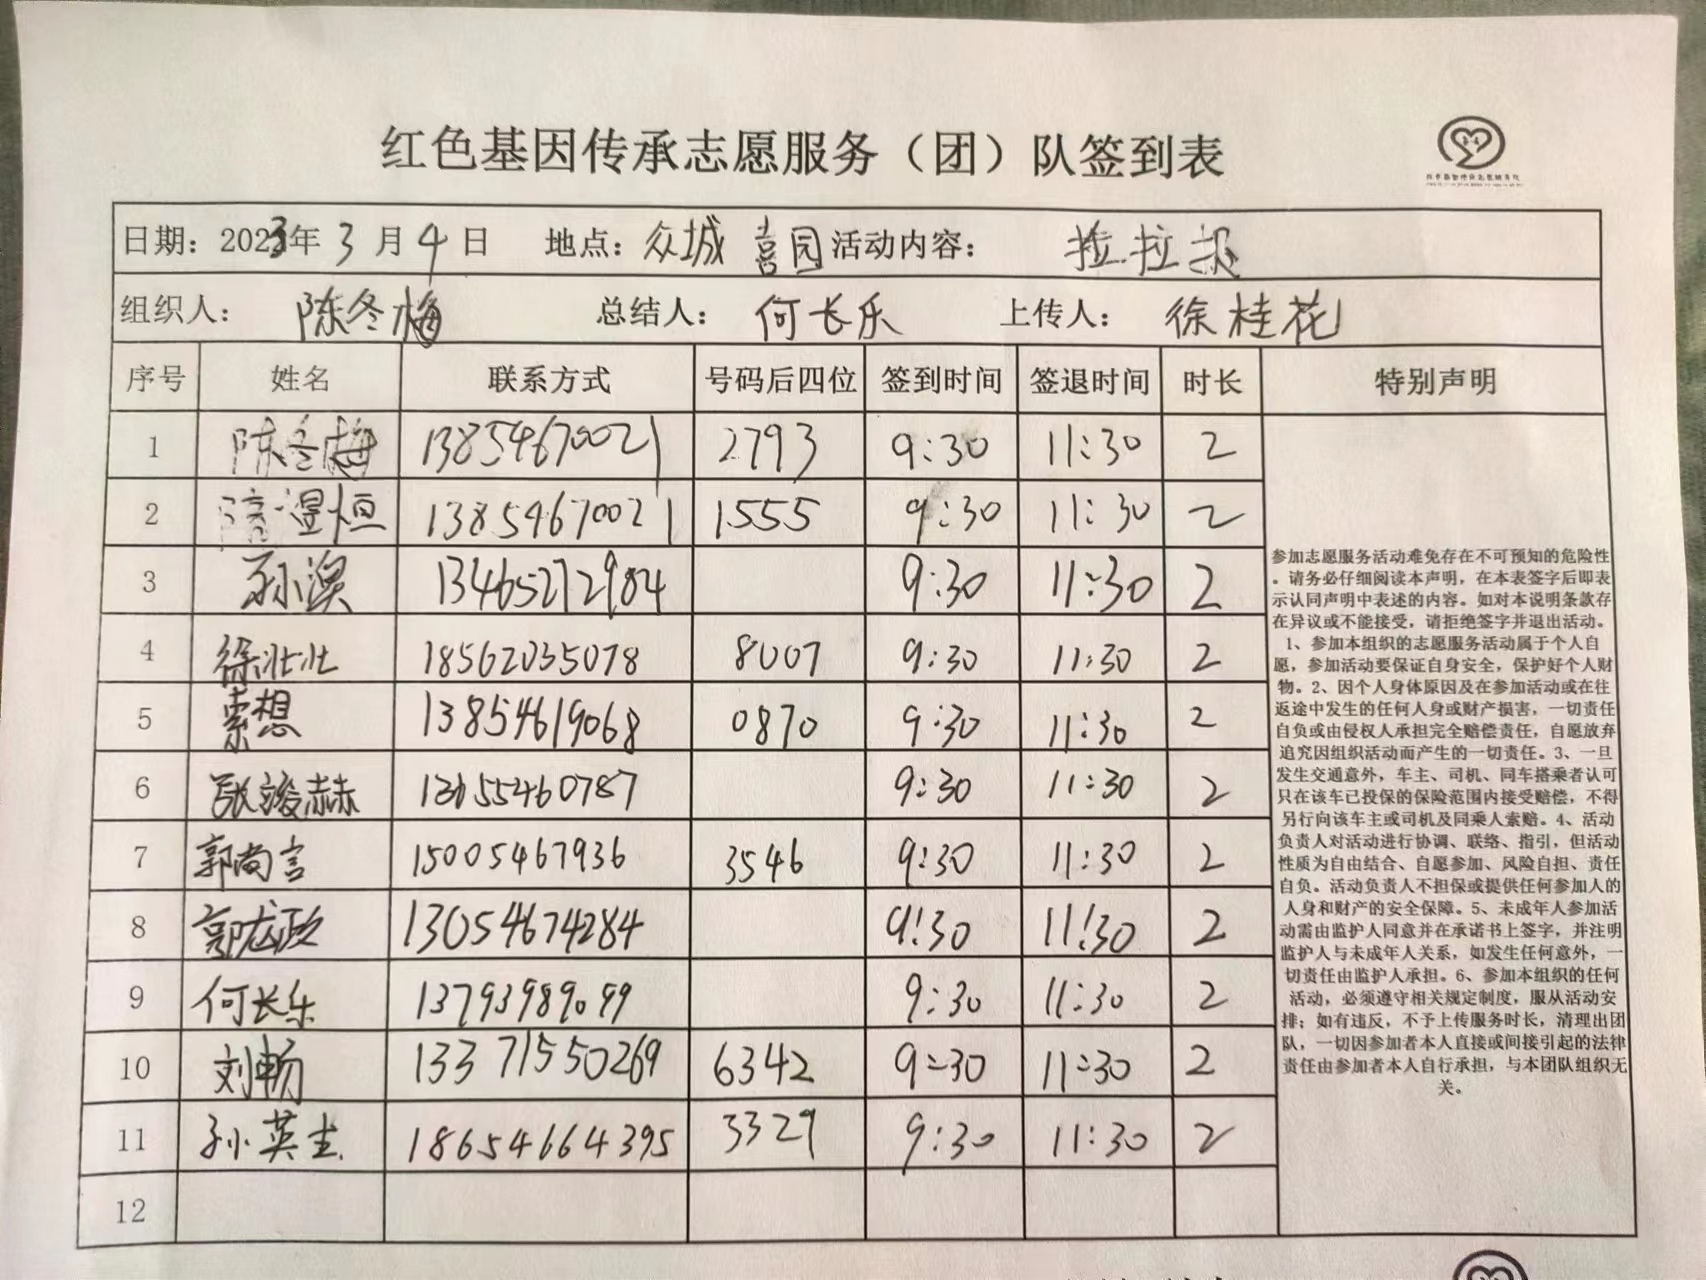 红色基因传承志愿服务（团）队签到表
日期：2023年 3 月 4 日 地点：众城 喜园 活动内容： 拉拉扱
组织人： 陈冬梅 总结人： 何长乐 上传人： 徐桂花
序号 姓名 联系方式 号码后四位 签到时间 签退时间 时长 特别声明
1 陈冬梅 13854670021 2793 9:30 11:30 2
2 恒 13854670021 1555 9:30 11:30 2
3 孙淏 13465272984 9:30 11:30 2
4 徐壮壮 18562035078 8007 9:30 11:30 2
5 索想 13854619068 0870 9:30 11:30 2
6 张浚赫 13655460787 9:30 11:30 2
7 郭尚言 15005467936 3546 9:30 11:30 2
8 郭龙政 13054674284 9:30 11:30 2
9 何长乐 13793989099 9:30 11:30 2
10 刘畅 13371550269 6342 9:30 11:30 2
11 孙英杰 18654664395 3329 9:30 11:30 2
12
参加志愿服务活动难免存在不可预知的危险性
。请务必仔细阅读本声明，在本表签字后即表
示认同声明中表述的内容。如对本说明条款存
在异议或不能接受，请拒绝签字并退出活动。
1、参加本组织的志愿服务活动属于个人自
愿，参加活动要保证自身安全，保护好个人财
物。2、因个人身体原因及在参加活动或在往
返途中发生的任何人身或财产损害，一切责任
自负或由侵权人承担完全赔偿责任，自愿放弃
追究因组织活动而产生的一切责任。3、一旦
发生交通意外，车主、司机、同车搭乘者认可
只在该车已投保的保险范围内接受赔偿，不得
另行向该车主或司机及同乘人索赔。4、活动
负责人对活动进行协调、联络、指引，但活动
性质为自由结合、自愿参加、风险自担、责任
自负。活动负责人不担保或提供任何参加人的
人身和财产的安全保障。5、未成年人参加活
动需由监护人同意并在承诺书上签字，并注明
监护人与未成年人关系，如发生任何意外，一
切责任由监护人承担。6、参加本组织的任何
活动，必须遵守相关规定制度，服从活动安
排；如有违反，不予上传服务时长，清理出团
队，一切因参加者本人直接或间接引起的法律
责任由参加者本人自行承担，与本团队组织无
关。